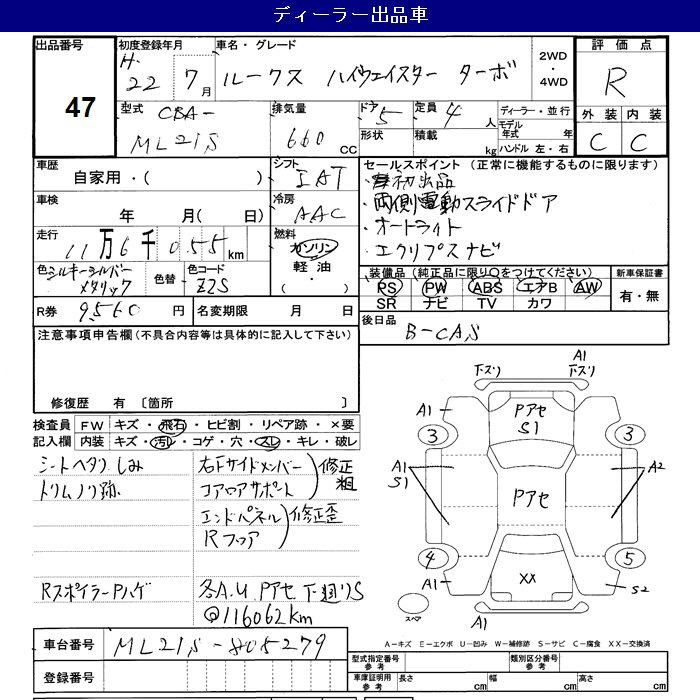 ディーラー出品車
出品番号
47
初度登録年月
H.
22 7月
車名・グレード
ルークス ハイウェイスター ターボ
2WD
・
4WD
評価点
R
外装 内装
C C
型式 CBA-
ML21S
排気量
660 CC
ドア 5
形状
定員 4人
積載 kg
ディーラー・並行
モデル年式 年
ハンドル 左・右
車歴
自家用・( )
シフト
IAT
車検
年 月( 日)
冷房
AAC
走行
11万6千055km
燃料
ガソリン
軽油・
( )
色 シルキーシルバー
メタリック
色替
色コード
Z2S
R券 9,560 円
名変期限 月 日
セールスポイント (正常に機能するものに限ります)
・初出品
・両側電動スライドドア
・オートライト
・エクリプスナビ
装備品(純正品に限り○をつけてください)
PS PW ABS エアB AW
SR ナビ TV カワ
新車保証書
有・無
後日品
B-CAS
注意事項申告欄(不具合内容等は具体的に記入して下さい)
修復歴 有 〔箇所 〕
検査員記入欄
FW キズ・飛石・ヒビ割・リペア跡・×要
内装 キズ・汚レ・コゲ・穴・スレ・キレ・破レ
シートヘタリ しみ
トリムノリ跡
右フサイドメンバー
コアロアサポート
修正粗
エンドパネル
Rフロア
修正歪
RスポイラーPハゲ
各A.U Pアセ 下廻りS
@116062km
車台番号 ML21S-805279
登録番号
下スリ
A1
下スリ
A1
Pアセ
S1
3
3
A1
S1
Pアセ
A2
4
5
A1
XX
S2
スペア
A1
A−キズ E−エクボ U−凹み W−補修跡 S−サビ C−腐食 XX−交換済
型式指定番号
参考
類別区分番号
参考
車庫証明用
参考
長さ cm
幅 cm
高さ cm